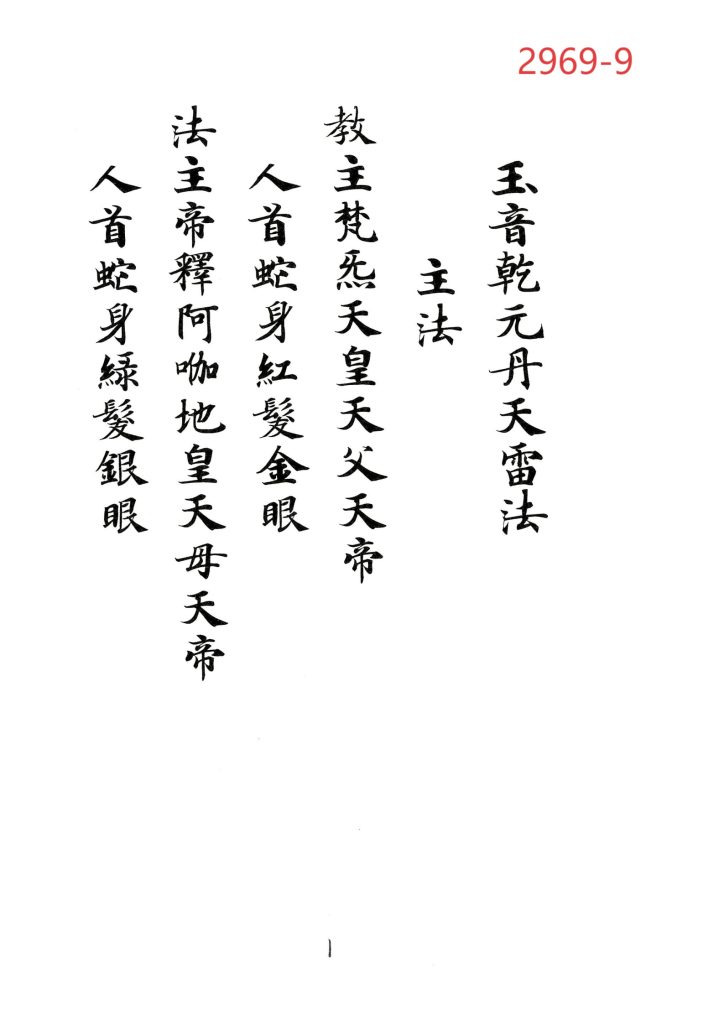 2969-9
玉音乾元丹天雷法
主法
教主梵炁天皇天父天帝
人首蛇身紅髮金眼
法主帝釋阿咖地皇天母天帝
人首蛇身緑髮銀眼
1